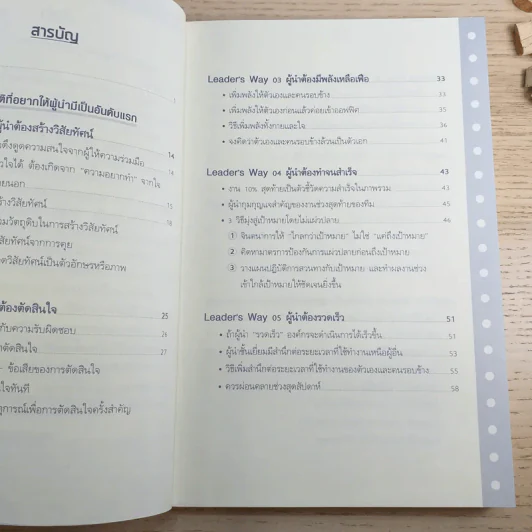 สารบัญ
ติที่อยากให้ผู้นำมีเป็นอันดับแรก
ผู้นำต้องสร้างวิสัยทัศน์ 14
ดึงดูดความสนใจจากผู้ให้ความร่วมมือ 14
วใจได้ ต้องเกิดจาก “ความอยากทำ” จากใจ
ยนอก 15
ร้างวิสัยทัศน์ 18
มวัตถุดิบในการสร้างวิสัยทัศน์
สัยทัศน์จากการคุย
ดวิสัยทัศน์เป็นตัวอักษรหรือภาพ
ต้องตัดสินใจ 25
กับความรับผิดชอบ 26
าตัดสินใจ 27
- ข้อเสียของการตัดสินใจ
ใจทันที
ตุการณ์เพื่อการตัดสินใจครั้งสำคัญ
Leader's Way 03 ผู้นำต้องมีพลังเหลือเฟือ 33
• เพิ่มพลังให้ตัวเองและคนรอบข้าง 33
• เพิ่มพลังให้ตัวเองก่อนแล้วค่อยเข้าออฟฟิศ 35
• วิธีเพิ่มพลังทั้งกายและใจ 36
• จงคิดว่าตัวเองและคนรอบข้างล้วนเป็นตัวเอก 41
Leader's Way 04 ผู้นำต้องทำจนสำเร็จ 43
• งาน 10% สุดท้ายเป็นตัวชี้วัดความสำเร็จในภาพรวม 43
• ผู้นำกุมกุญแจสำคัญของงานช่วงสุดท้ายของทีม 45
• 3 วิธีมุ่งสู่เป้าหมายโดยไม่แผ่วปลาย 46
① จินตนาการให้ “ไกลกว่าเป้าหมาย” ไม่ใช่ “แค่ถึงเป้าหมาย”
② คิดหามาตรการป้องกันการแผ่วปลายก่อนถึงเป้าหมาย
③ วางแผนปฏิบัติการสวนทางกับเป้าหมาย และทำผลงานช่วง
เข้าใกล้เป้าหมายให้ชัดเจนยิ่งขึ้น
Leader's Way 05 ผู้นำต้องรวดเร็ว 51
• ถ้าผู้นำ “รวดเร็ว” องค์กรจะดำเนินการได้เร็วขึ้น 51
• ผู้นำชั้นเยี่ยมมีสำนึกต่อระยะเวลาที่ใช้ทำงานเหนือผู้อื่น 53
• วิธีเพิ่มสำนึกต่อระยะเวลาที่ใช้ทำงานของตัวเองและคนรอบข้าง 55
• ควรผ่อนคลายช่วงสุดสัปดาห์ 58